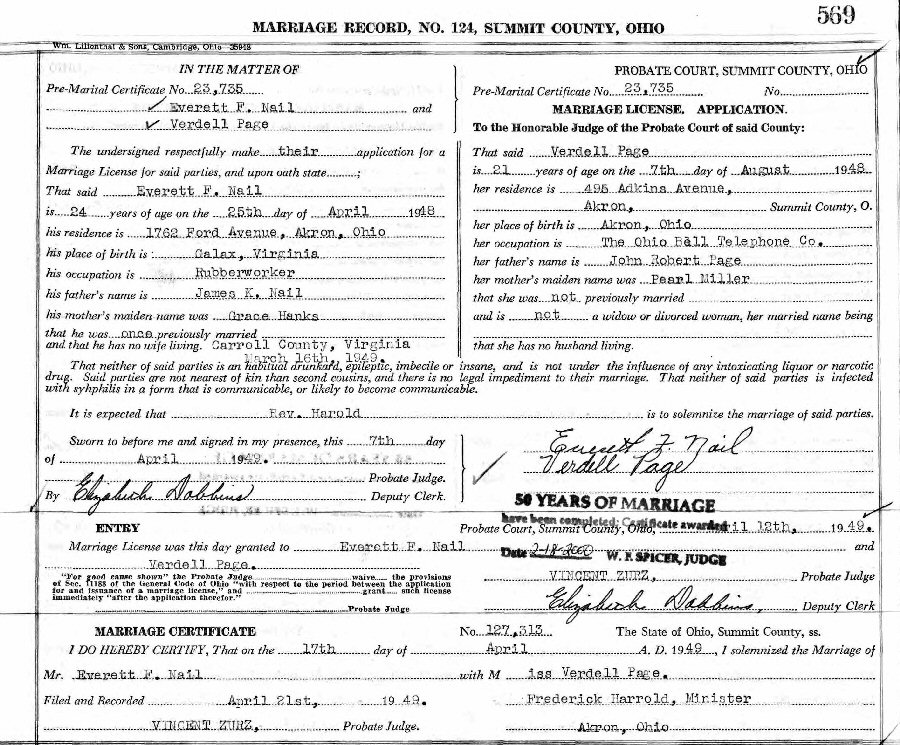 569
MARRIAGE RECORD, NO. 124, SUMMIT COUNTY, OHIO
Wm. Lilienthal & Sons, Cambridge, Ohio 35948
IN THE MATTER OF
Pre-Marital Certificate No. 23,735
Everett F. Nail and
Verdell Page
The undersigned respectfully make their application for a
Marriage License for said parties, and upon oath state ;
That said Everett F. Nail
is 24 years of age on the 25th day of April 1948
his residence is 1762 Ford Avenue, Akron, Ohio
his place of birth is Galax, Virginia
his occupation is Rubberworker
his father's name is James K. Nail
his mother's maiden name was Grace Hanks
that he was once previously married
and that he has no wife living. Carroll County, Virginia
March 16th, 1949.
PROBATE COURT, SUMMIT COUNTY, OHIO
Pre-Marital Certificate No. 23,735 No.
MARRIAGE LICENSE. APPLICATION.
To the Honorable Judge of the Probate Court of said County:
That said Verdell Page
is 21 years of age on the 7th day of August 1948
her residence is 495 Adkins Avenue,
Akron, Summit County, O.
her place of birth is Akron, Ohio
her occupation is The Ohio Bell Telephone Co.
her father's name is John Robert Page
her mother's maiden name was Pearl Miller
that she was not previously married
and is not a widow or divorced woman, her married name being
that she has no husband living.
That neither of said parties is an habitual drunkard, epileptic, imbecile or insane, and is not under the influence of any intoxicating liquor or narcotic
drug. Said parties are not nearest of kin than second cousins, and there is no legal impediment to their marriage. That neither of said parties is infected
with syhphilis in a form that is communicable, or likely to become communicable.
It is expected that Rev. Harold is to solemnize the marriage of said parties.
Sworn to before me and signed in my presence, this 7th day
of April 1949.
Probate Judge.
By Elizabeth Dobbins Deputy Clerk.
Everett F. Nail
Verdell Page
50 YEARS OF MARRIAGE
have been completed; Certificate awarded
Date 2-18-2000 W. F. SPICER, JUDGE
ENTRY
Probate Court, Summit County, Ohio, April 12th, 1949.
Marriage License was this day granted to Everett F. Nail and
Verdell Page.
"For good cause shown" the Probate Judge waive the provisions
of Sec. 11188 of the General Code of Ohio "with respect to the period between the application
for and issuance of a marriage license," and grant such license
immediately "after the application therefor."
Probate Judge
VINCENT ZURZ, Probate Judge
Elizabeth Dobbins, Deputy Clerk
MARRIAGE CERTIFICATE No. 127,313 The State of Ohio, Summit County, ss.
I DO HEREBY CERTIFY, That on the 17th day of April A. D. 1949, I solemnized the Marriage of
Mr. Everett F. Nail with M iss Verdell Page.
Filed and Recorded April 21st, 1949. Frederick Harrold, Minister
VINCENT ZURZ, Probate Judge. Akron, Ohio